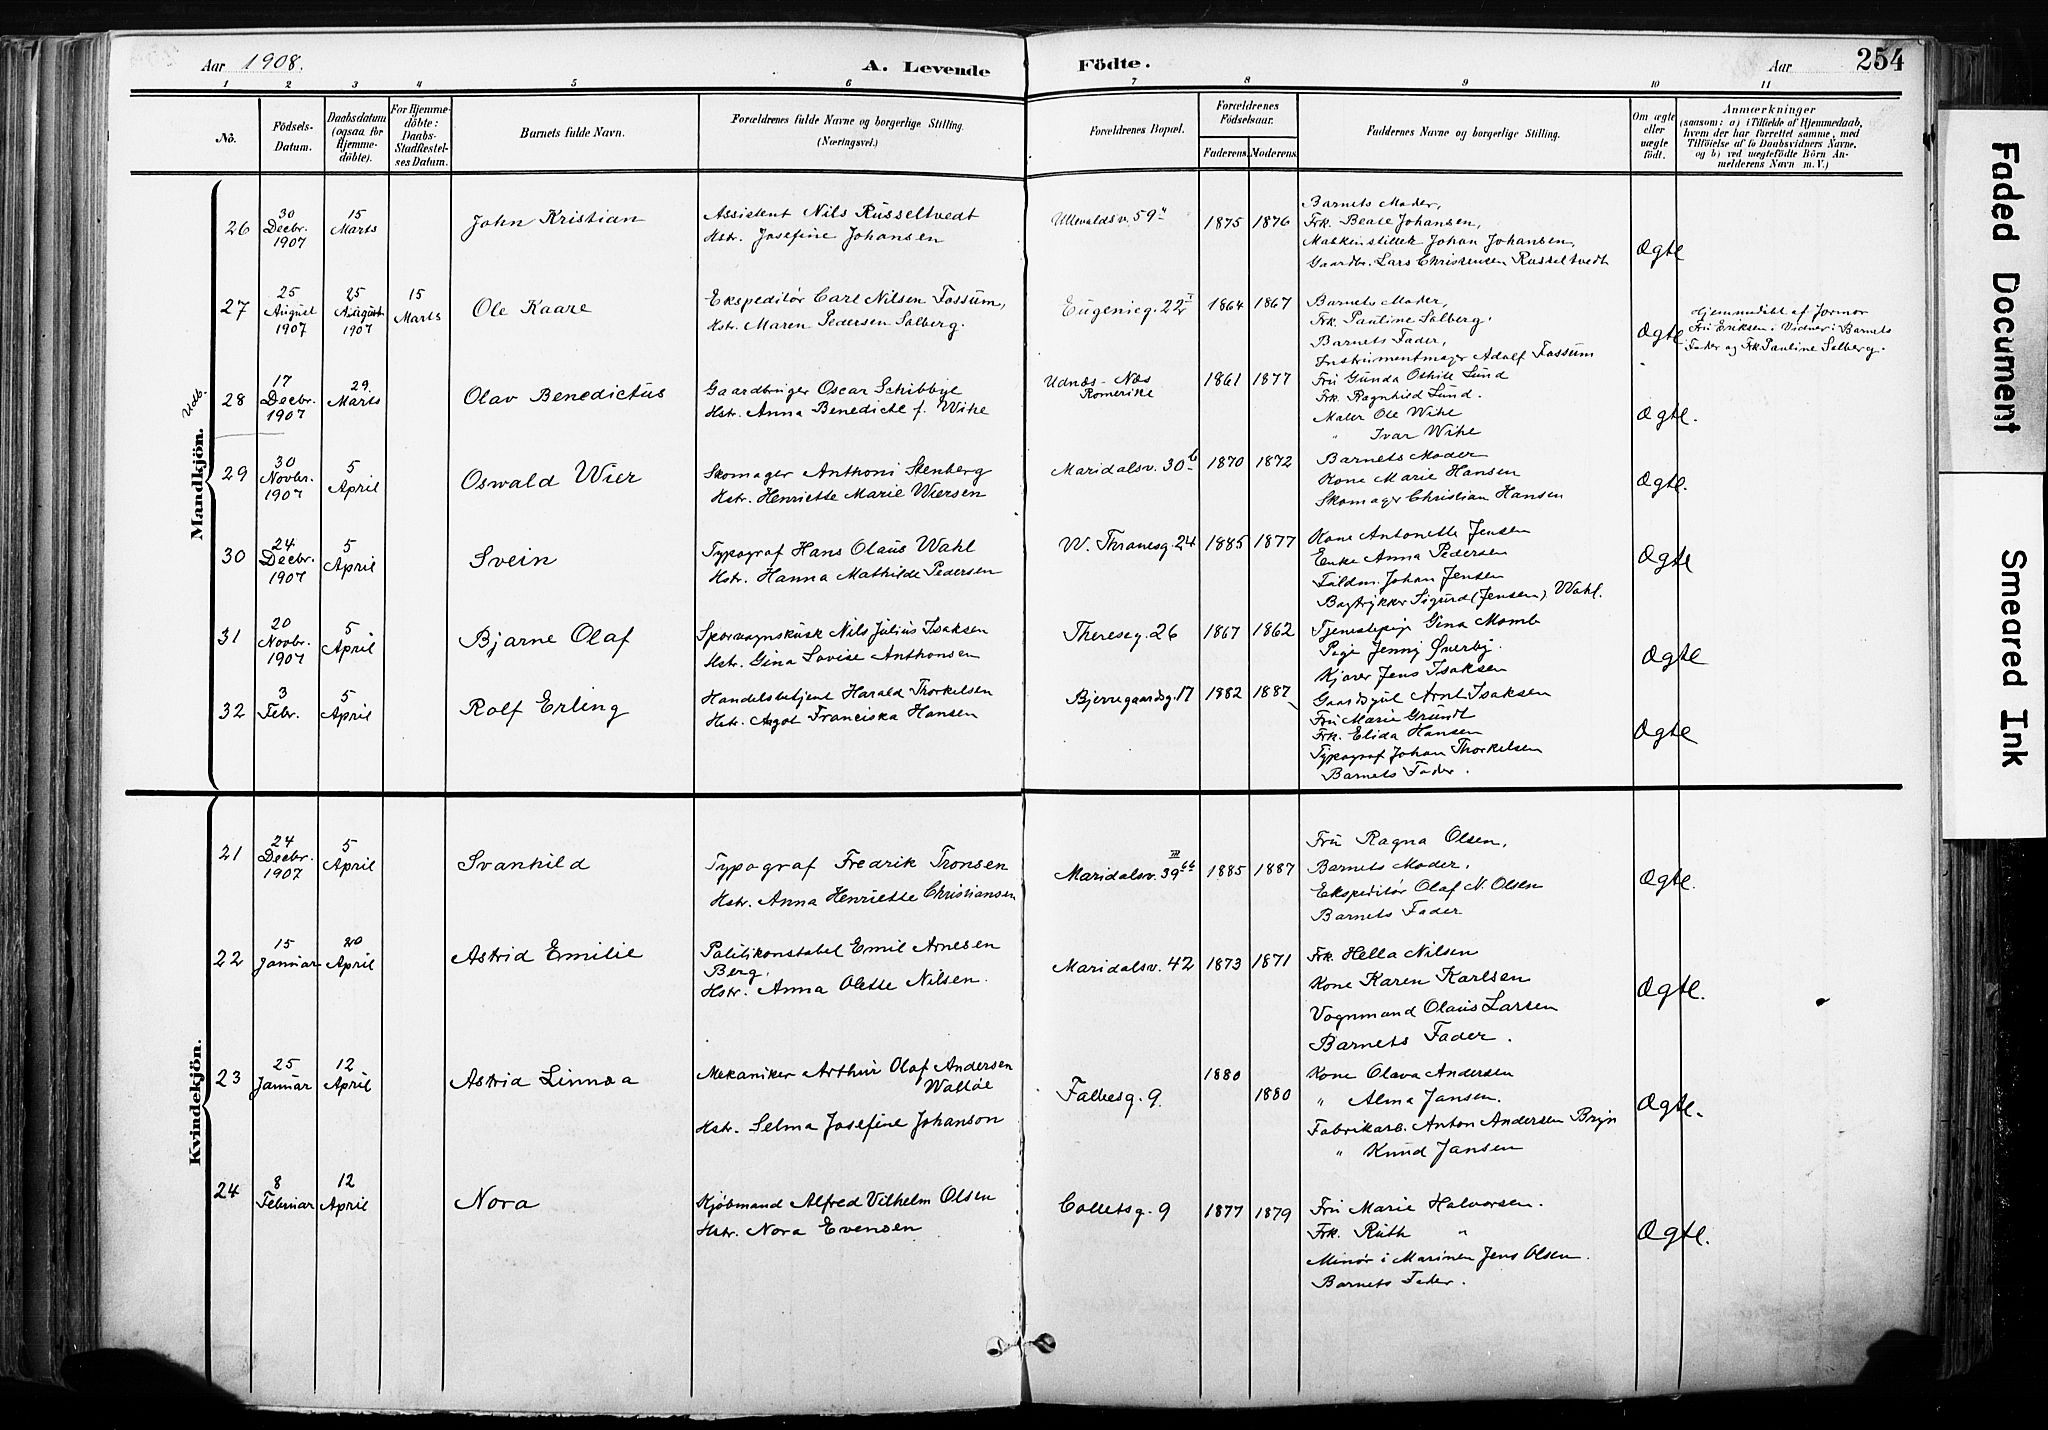 Aar 1908.
A. Levende Födte.
Aar
254
1 2 3 4 5 6 7 8 9 10 11
No.
Födsels-Datum.
Daabsdatum (ogsaa for Hjemme-döbte).
For Hjemme-döbte: Daabs-Stadfæstel-ses Datum.
Barnets fulde Navn.
Forældrenes fulde Navne og borgerlige Stilling. (Næringsvei.)
Forældrenes Bopæl.
Forældrenes Födselsaar.
Faderens. Moderens.
Faddernes Navne og borgerlige Stilling.
Om ægte eller uægte födt.
Anmærkninger
(saasom: a) i Tilfælde af Hjemmedaab, hvem der har forrettet samme, med Tilföielse af to Daabsvidners Navne, og b) ved uægtefödte Börn An-melderens Navn m.V.)
Mandkjön.
26 30 Decbr. 1907 15 Marts John Kristian
Assistent Nils Russeltvedt
Hstr. Josefine Johansen
Ullevaldsv. 59 1875 1876
Barnets Moder,
Frk. Beate Johansen,
Maskinstiller Johan Johansen,
Gaardbr. Lars Christensen Russeltvedt
Ægte
27 25 August 1907 25 August 1907 15 Marts Ole Kaare
Ekspeditör Carl Nilsen Fossum,
Hstr. Maren Pedersen Solberg.
Eugenieg. 22 I 1864 1867
Barnets Moder,
Frk. Pauline Solberg.
Barnets Fader,
Instrumentmager Adolf Fossum
Ægte
Hjemmedöbt af Jormor
Fru Eriksen; Vidner: Barnets
Fader og Frk Pauline Solberg.
Udb.
28 17 Decbr. 1907 29. Marts Olav Benedictus
Gaardbruger Oscar Schibbye
Hstr. Anna Benedicte f. Wihe
Udnæs - Næs
Romerike
1861 1877
Fru Gunda Othilie Lund
Frk. Ragnhild Lund.
Maler Ole Wihe
" Ivar Wihe
Ægte.
29 30 Novbr. 1907 5 April Oswald Wier
Skomager Anthoni Stenberg
Hstr. Henriette Marie Wiersen
Maridalsv. 30 b 1870 1872
Barnets Moder
Kone Marie Hansen
Skomager Christian Hansen
Ægte.
30 24 Decbr. 1907 5 April Svein
Typograf Hans Olaus Wahl
Hstr. Hanna Mathilde Pedersen
W. Thranesg. 24 1885 1877
Kone Antonette Jensen
Enke Anna Pedersen
Fuldm. Johan Jensen
Bogtrykker Sigurd (Jensen) Wahl.
Ægte
31 20 Novbr. 1907 5 April Bjarne Olaf
Sporvognskusk Nils Julius Isaksen
Hstr. Gina Lovise Anthonsen
Thereseg. 26 1867 1862
Tjenestepige Gina Momb
Pige Jenny Överby.
Kjører Jens Isaksen
Gaardsgut Arnt Isaksen
Ægte
32 3 Febr. 5 April Rolf Erling
Handelsbetjent Harald Thorkelsen
Hstr. Aagot Franciska Hansen
Bjerregaardsg. 17 1882 1887
Fru Marie Grundt
Frk. Elida Hansen
Typograf Johan Thorkelsen
Barnets Fader.
Ægte
Kvindekjön.
21 24 Decbr. 1907 5 April Svanhild
Typograf Fredrik Tronsen
Hstr. Anna Henriette Christiansen
Maridalsv. 39 bb III 1885 1887
Fru Ragna Olsen,
Barnets Moder,
Ekspeditör Olaf N. Olsen
Barnets Fader
Ægte.
22 15 Januar 20 April Astrid Emilie
Politikonstabel Emil Arnesen
Berg.
Hstr. Anna Olette Nilsen.
Maridalsv. 42 1873 1871
Frk. Hella Nilsen
Kone Karen Karlsen
Vognmand Olaus Larsen
Barnets Fader.
Ægte.
23 25 Januar 12 April Astrid Linnea
Mekaniker Arthur Olaf Andersen
Walløe
Hstr. Selma Josefine Johanson
Falbesg. 9. 1880 1880
Kone Olava Andersen
" Alma Jansen.
Fabrikarb. Anton Andersen Bryn
" Knud Jansen
Ægte.
24 8 Februar 12 April Nora
Kjöbmand Alfred Vilhelm Olsen
Hstr. Nora Evensen
Colletsg. 9 1877 1879
Fru Marie Halvorsen.
Frk. Ruth "
Minör i Marinen Jens Olsen.
Barnets Fader.
Ægte.
Faded Document
Smeared Ink